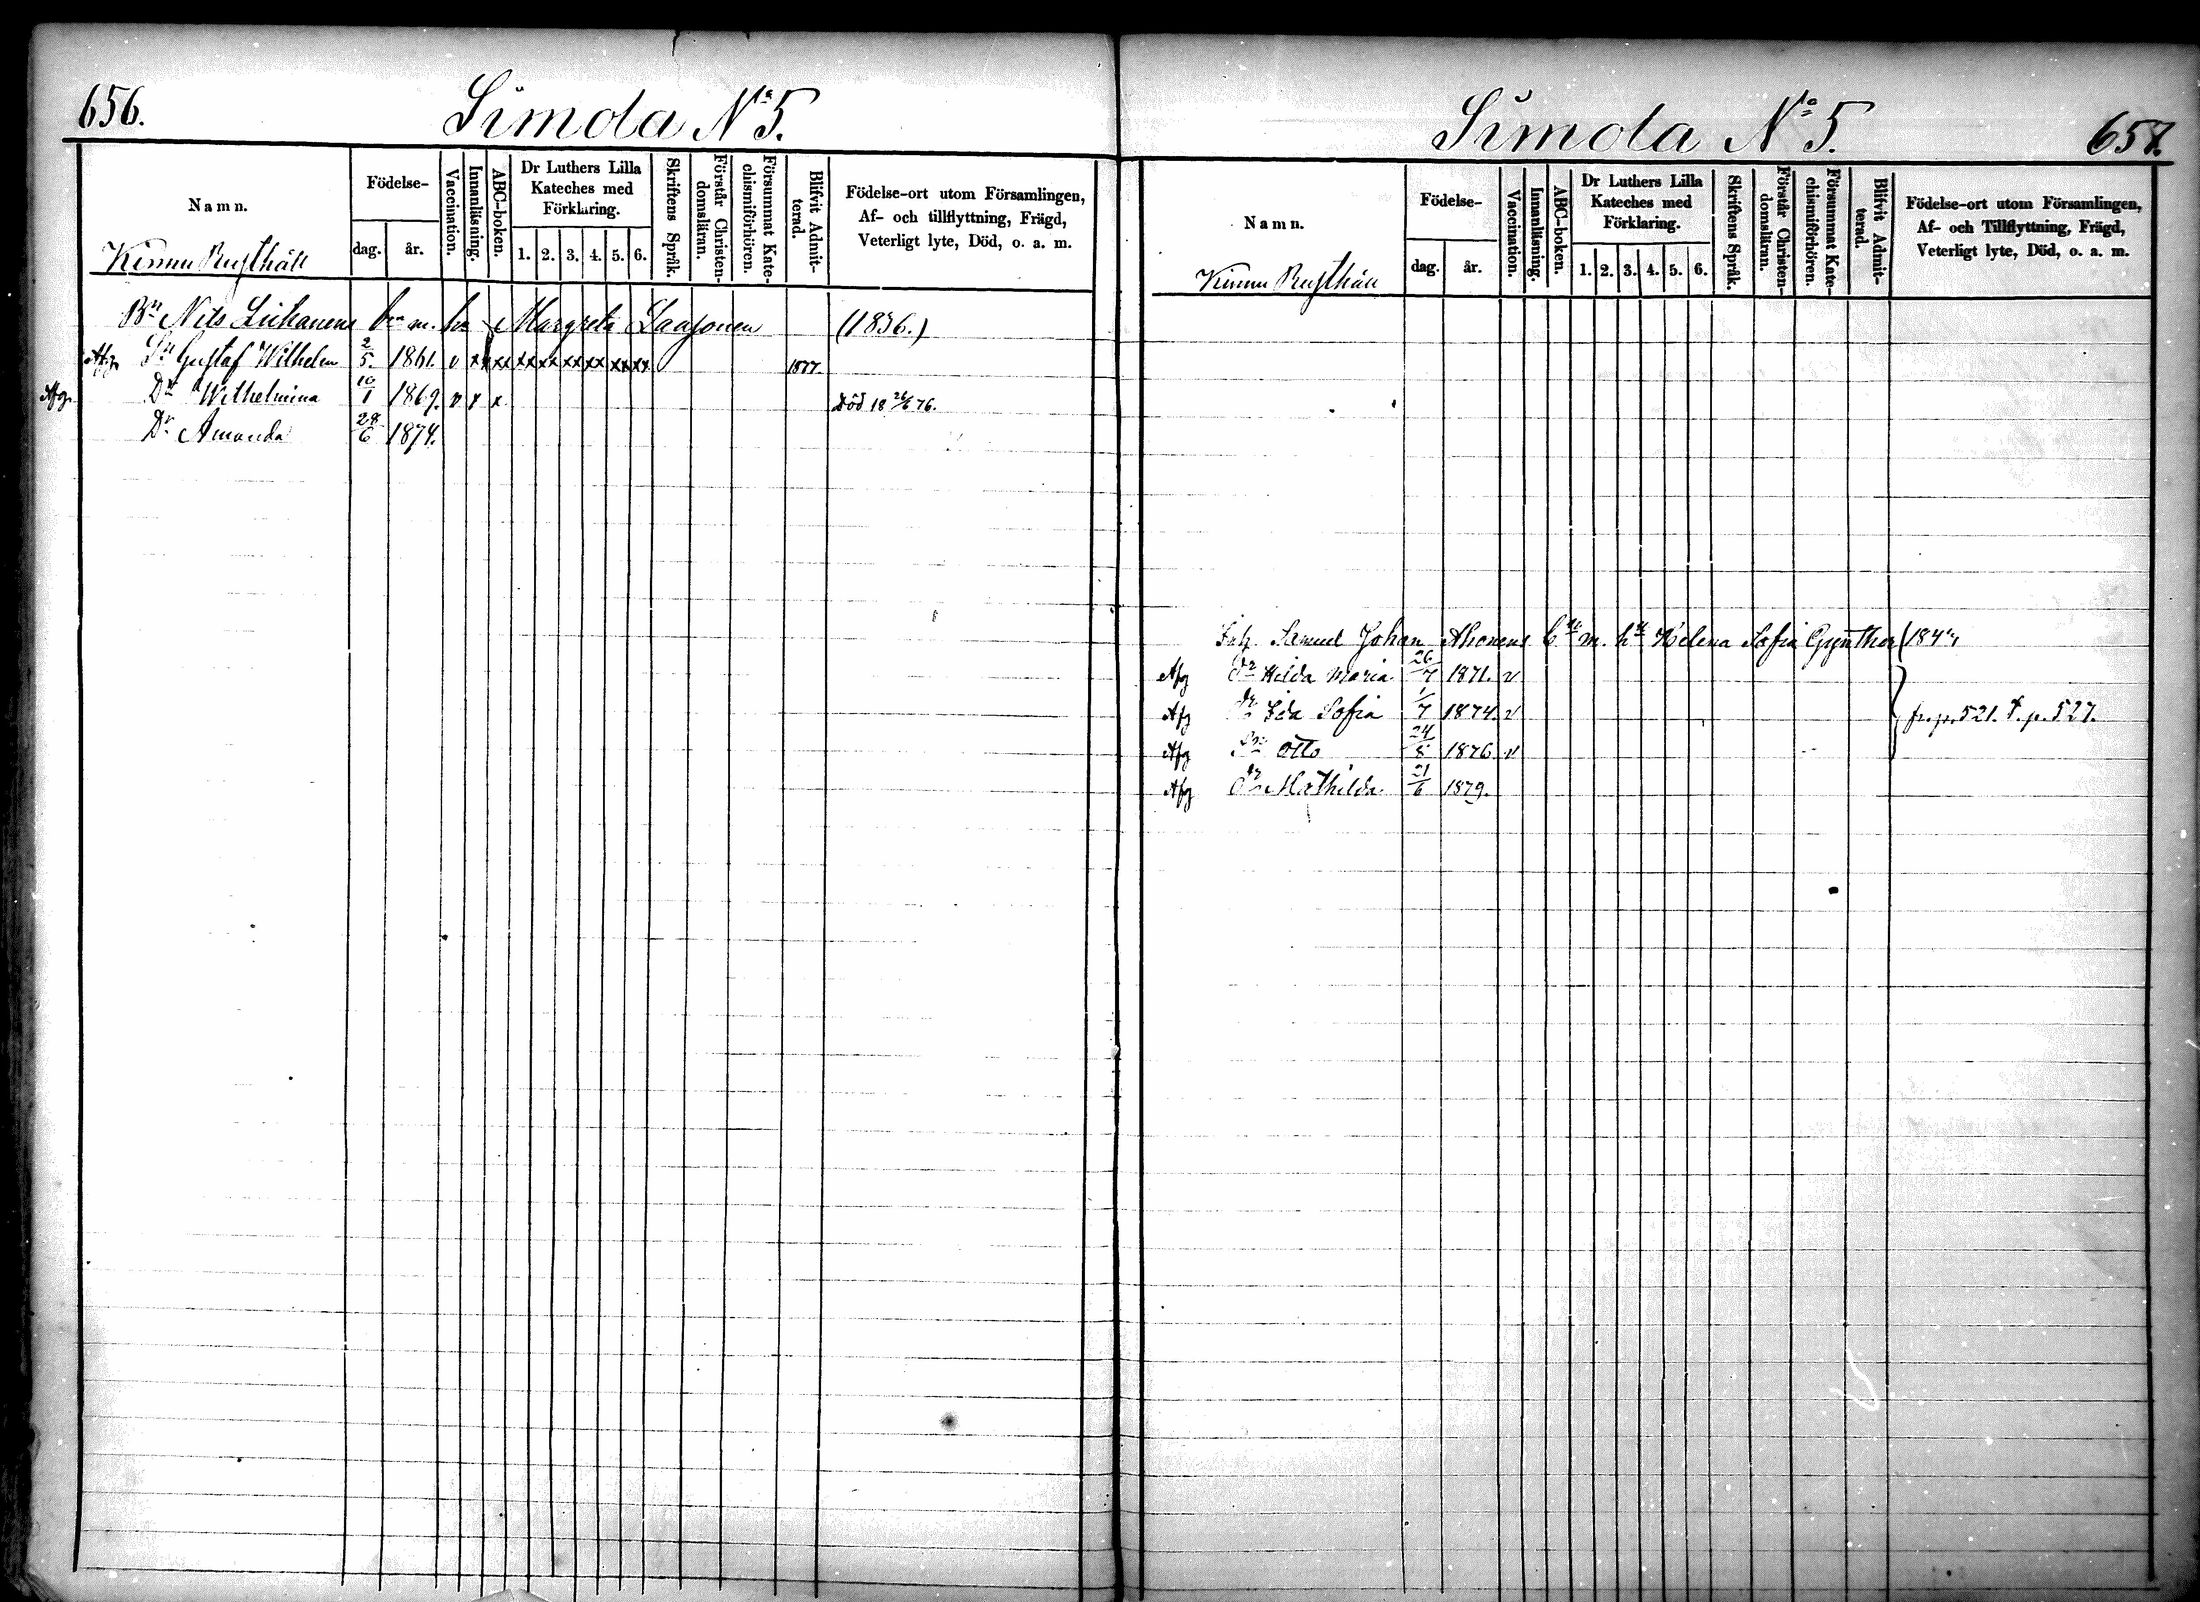 656.
Simola No 5.
Namn.
Födelse-
dag.
år.
Vaccination.
Innanläsning.
ABC-boken.
Dr Luthers Lilla Kateches med Förklaring.
1. 2. 3. 4. 5. 6.
Skriftens Språk.
Förstår Christendomsläran.
Försummat Katechismiförhören.
Blifvit Admitterad.
Födelse-ort utom Församlingen, Af- och tillflyttning, Frägd, Veterligt lyte, Död, o. a. m.
Kimmu Rusthåll
Bn Nils b m. h Margreta Laasonen (1836.)
Afg Sn Gustaf Wilhelm 2/5. 1861. v xx xx xx xx xx xx xx xx 1877.
Afg. Dr Wilhelmina 10/1 1869. v x x Död 18 26/6 76.
Dr Amanda 28/6 1874.
Simola No 5.
657.
Namn.
Födelse-
dag.
år.
Vaccination.
Innanläsning.
ABC-boken.
Dr Luthers Lilla Kateches med Förklaring.
1. 2. 3. 4. 5. 6.
Skriftens Språk.
Förstår Christendomsläran.
Försummat Katechismiförhören.
Blifvit Admitterad.
Födelse-ort utom Församlingen, Af- och Tillflyttning, Frägd, Veterligt lyte, Död, o. a. m.
Kimmu Rusthåll
Inh. Samuel Johan Ahonens b m. h Helena Sofia Gynther
Afg dr Hilda Maria 26/7 1871. v
Afg dr Ida Sofia 1/7 1874. v fr. p. 521. t. p. 527.
Afg Sn Otto 24/8 1876 v
Afg dr Mathilda 21/6 1879.